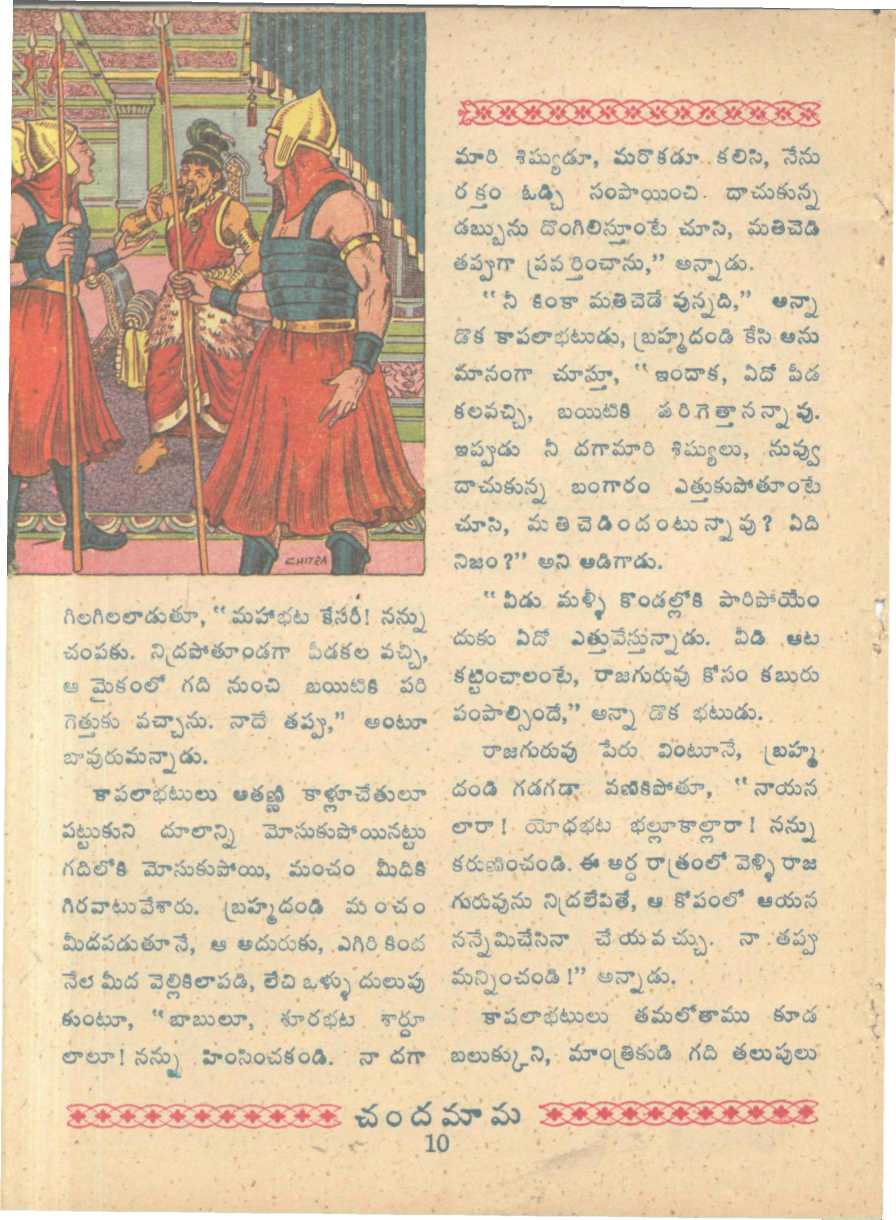 CHITRA
గిలగిలలాడుతూ, “మహాభట కేసరీ! నన్ను
చంపకు. నిద్రపోతూండగా పీడకల వచ్చి,
ఆ మైకంలో గది నుంచి బయిటికి పరి
గెత్తుకు వచ్చాను. నాదే తప్పు,” అంటూ
బావురుమన్నాడు.
కాపలాభటులు అతణ్ణి కాళ్లూచేతులూ
పట్టుకుని దూలాన్ని మోసుకుపోయినట్టు
గదిలోకి మోసుకుపోయి, మంచం మీదికి
గిరవాటువేశారు. బ్రహ్మదండి మంచం
మీదపడుతూనే, ఆ అదురుకు, ఎగిరి కింద
నేల మీద వెల్లికిలాపడి, లేచి ఒళ్ళు దులుపు
కుంటూ, “బాబులూ, శూరభట శార్దూ
లాలూ! నన్ను హింసించకండి. నా దగా
మారి శిష్యుడూ, మరొకడూ కలిసి, నేను
రక్తం ఓడ్చి సంపాయించి దాచుకున్న
డబ్బును దొంగిలిస్తూంటే చూసి, మతిచెడి
తప్పుగా ప్రవర్తించాను,” అన్నాడు.
“నీ కింకా మతిచెడే వున్నది,” అన్నా
డొక కాపలాభటుడు, బ్రహ్మదండి కేసి అను
మానంగా చూస్తూ, “ఇందాక, ఏదో పీడ
కలవచ్చి, బయిటికి పరిగెత్తానన్నావు.
ఇప్పుడు నీ దగామారి శిష్యులు, నువ్వు
దాచుకున్న బంగారం ఎత్తుకుపోతూంటే
చూసి, మతిచెడిందంటున్నావు? ఏది
నిజం?” అని అడిగాడు.
“వీడు మళ్ళీ కొండల్లోకి పారిపోయేం
దుకు ఏదో ఎత్తువేస్తున్నాడు. వీడి ఆట
కట్టించాలంటే, రాజగురువు కోసం కబురు
పంపాల్సిందే,” అన్నా డొక భటుడు.
రాజగురువు పేరు వింటూనే, బ్రహ్మ
దండి గడగడా వణికిపోతూ, “నాయన
లారా! యోధభట భల్లూకాల్లారా! నన్ను
కరుణించండి. ఈ అర్ధ రాత్రంలో వెళ్ళి రాజ
గురువును నిద్రలేపితే, ఆ కోపంలో ఆయన
నన్నేమిచేసినా చేయవచ్చు. నా తప్పు
మన్నించండి!” అన్నాడు.
కాపలాభటులు తమలోతాము కూడ
బలుక్కుని, మాంత్రికుడి గది తలుపులు
చందమామ
10